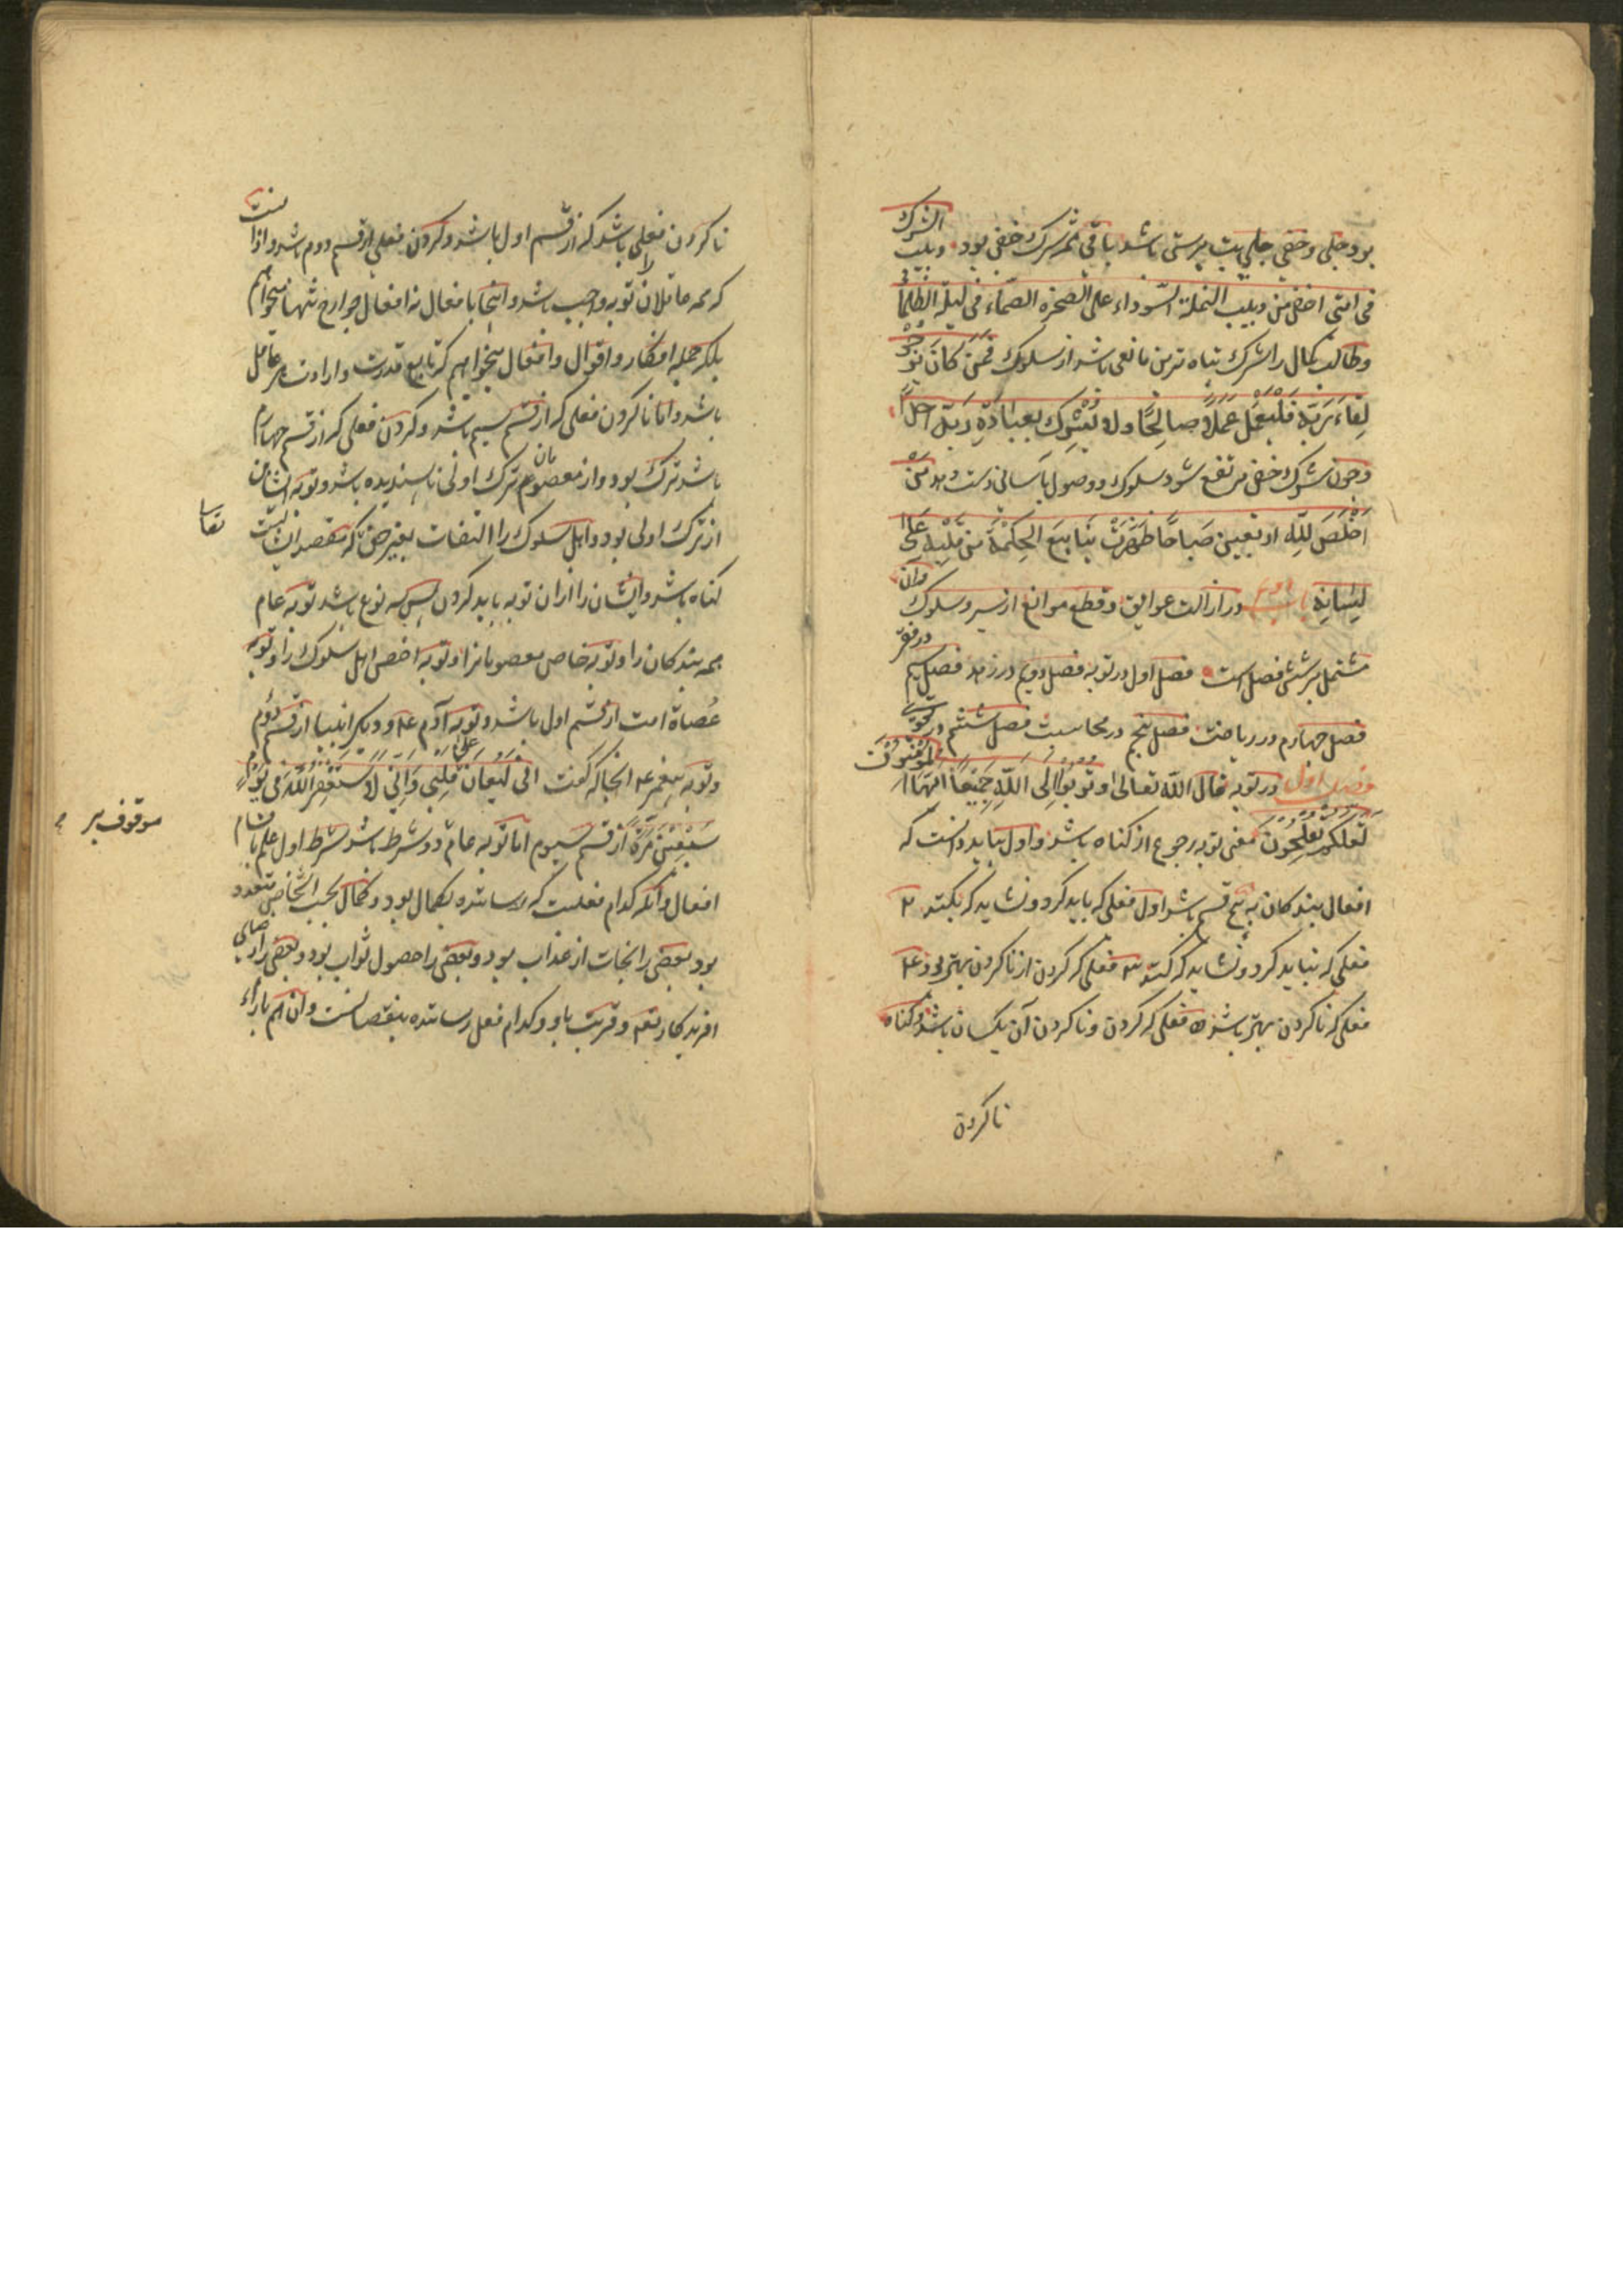 بود جلی و خفی جلی بت پرستی باشد باقی همه شرک خفی بود دبیب الشرک
فی امتی اخفی من دبیب النملة السوداء علی الصخرة الصماء فی لیلة الظلماء
و طالب کمال را شرک تباه ترین مانعی باشد از سلوک فَمَن کَانَ یَرْجُو
لِقَاءَ رَبِّهِ فَلْیَعْمَلْ عَمَلًا صَالِحًا وَلَا یُشْرِكْ بِعِبَادَةِ رَبِّهِ أَحَدًا
و چون شرک خفی مرتفع شود سلوک و وصول بآسانی دست دهد مَنْ
اَخْلَصَ لِلّهِ اربعین صَبَاحًا ظَهَرَتْ یَنَابِیعَ الحِکْمَةِ مِن قَلْبِهِ عَلَی
لِسَانِهِ باب دوم در ازالت عوایق و قطع موانع از سیر و سلوک و آن
مشتمل بر شش فصل است فصل اول در توبه فصل دویم در زهد فصل سیم در فقر
فصل چهارم در ریاضت فصل پنجم در محاسبت فصل ششم در تقوی
فصل اول در توبه قال الله تعالی وَتُوبُوا إِلَی اللّهِ جَمِیعًا أَیُّهَا الْمُؤْمِنُونَ
لَعَلَّکُمْ تُفْلِحُونَ معنی توبه رجوع از کناه باشد و اول بباید دانست که
افعال بندکان به پنج قسم باشد اول فعلی که باید کرد و نشاید که نکند ۲
فعلی که نباید کرد و نشاید که کند ۳ فعلی که کردن از ناکردن بهتر بود ۴
فعلی که ناکردن بهتر باشد ۵ فعلی که کردن و ناکردن آن یکسان باشد و کناه
ناکردن
ناکردن فعلی باشد که از قسم اول باشد و کردن فعلی از قسم دوم باشد و از آنست
که همه عاقلان را توبه واجب باشد و اینجا بافعال نه افعال جوارح تنها میخواهم
بلکه جمله افکار و اقوال و افعال میخواهیم که تابع قدرت و ارادت هر عاقل
باشد و اما ناکردن فعلی که از قسم سیم باشد و کردن فعلی که از قسم چهارم
باشد ترک بود و از معصومان ترک اولی ناپسندیده باشد و توبه ایشان
از ترک اولی بود و اهل سلوک را التفات بغیر حق که مقصد ایشانست
تعالی
کناه باشد و ایشان را از ان توبه باید کردن پس سه نوع باشد توبه عام
همه بندکان را و توبه خاص معصومانرا و توبه اخص اهل سلوک را و توبه
عُصاة امت از قسم اول باشد و توبه آدم ع و دیکر انبیا از قسم دوم
و توبه پیغمبر ع انجا که کفت انی لَیُغَانُ عَلَی قَلْبِی وَاِنِّی لَاَسْتَغْفِرُ اللّهَ فی یَوْمٍ
سَبْعِینَ مَرَّةً از قسم سیوم اما توبه عام دو شرط باشد شرط اول علم باقسام
موقوف بر
افعال و آنکه کدام فعلست که رساننده بکمال بود و کمال بحسب اشخاص متعدد
بود بعضی را نجات از عذاب بود و بعضی را حصول ثواب بود و بعضی را رضای
افریدکار تعالی و قربت باو و کدام فعل رساننده بنقصانست و ان هم بازاء